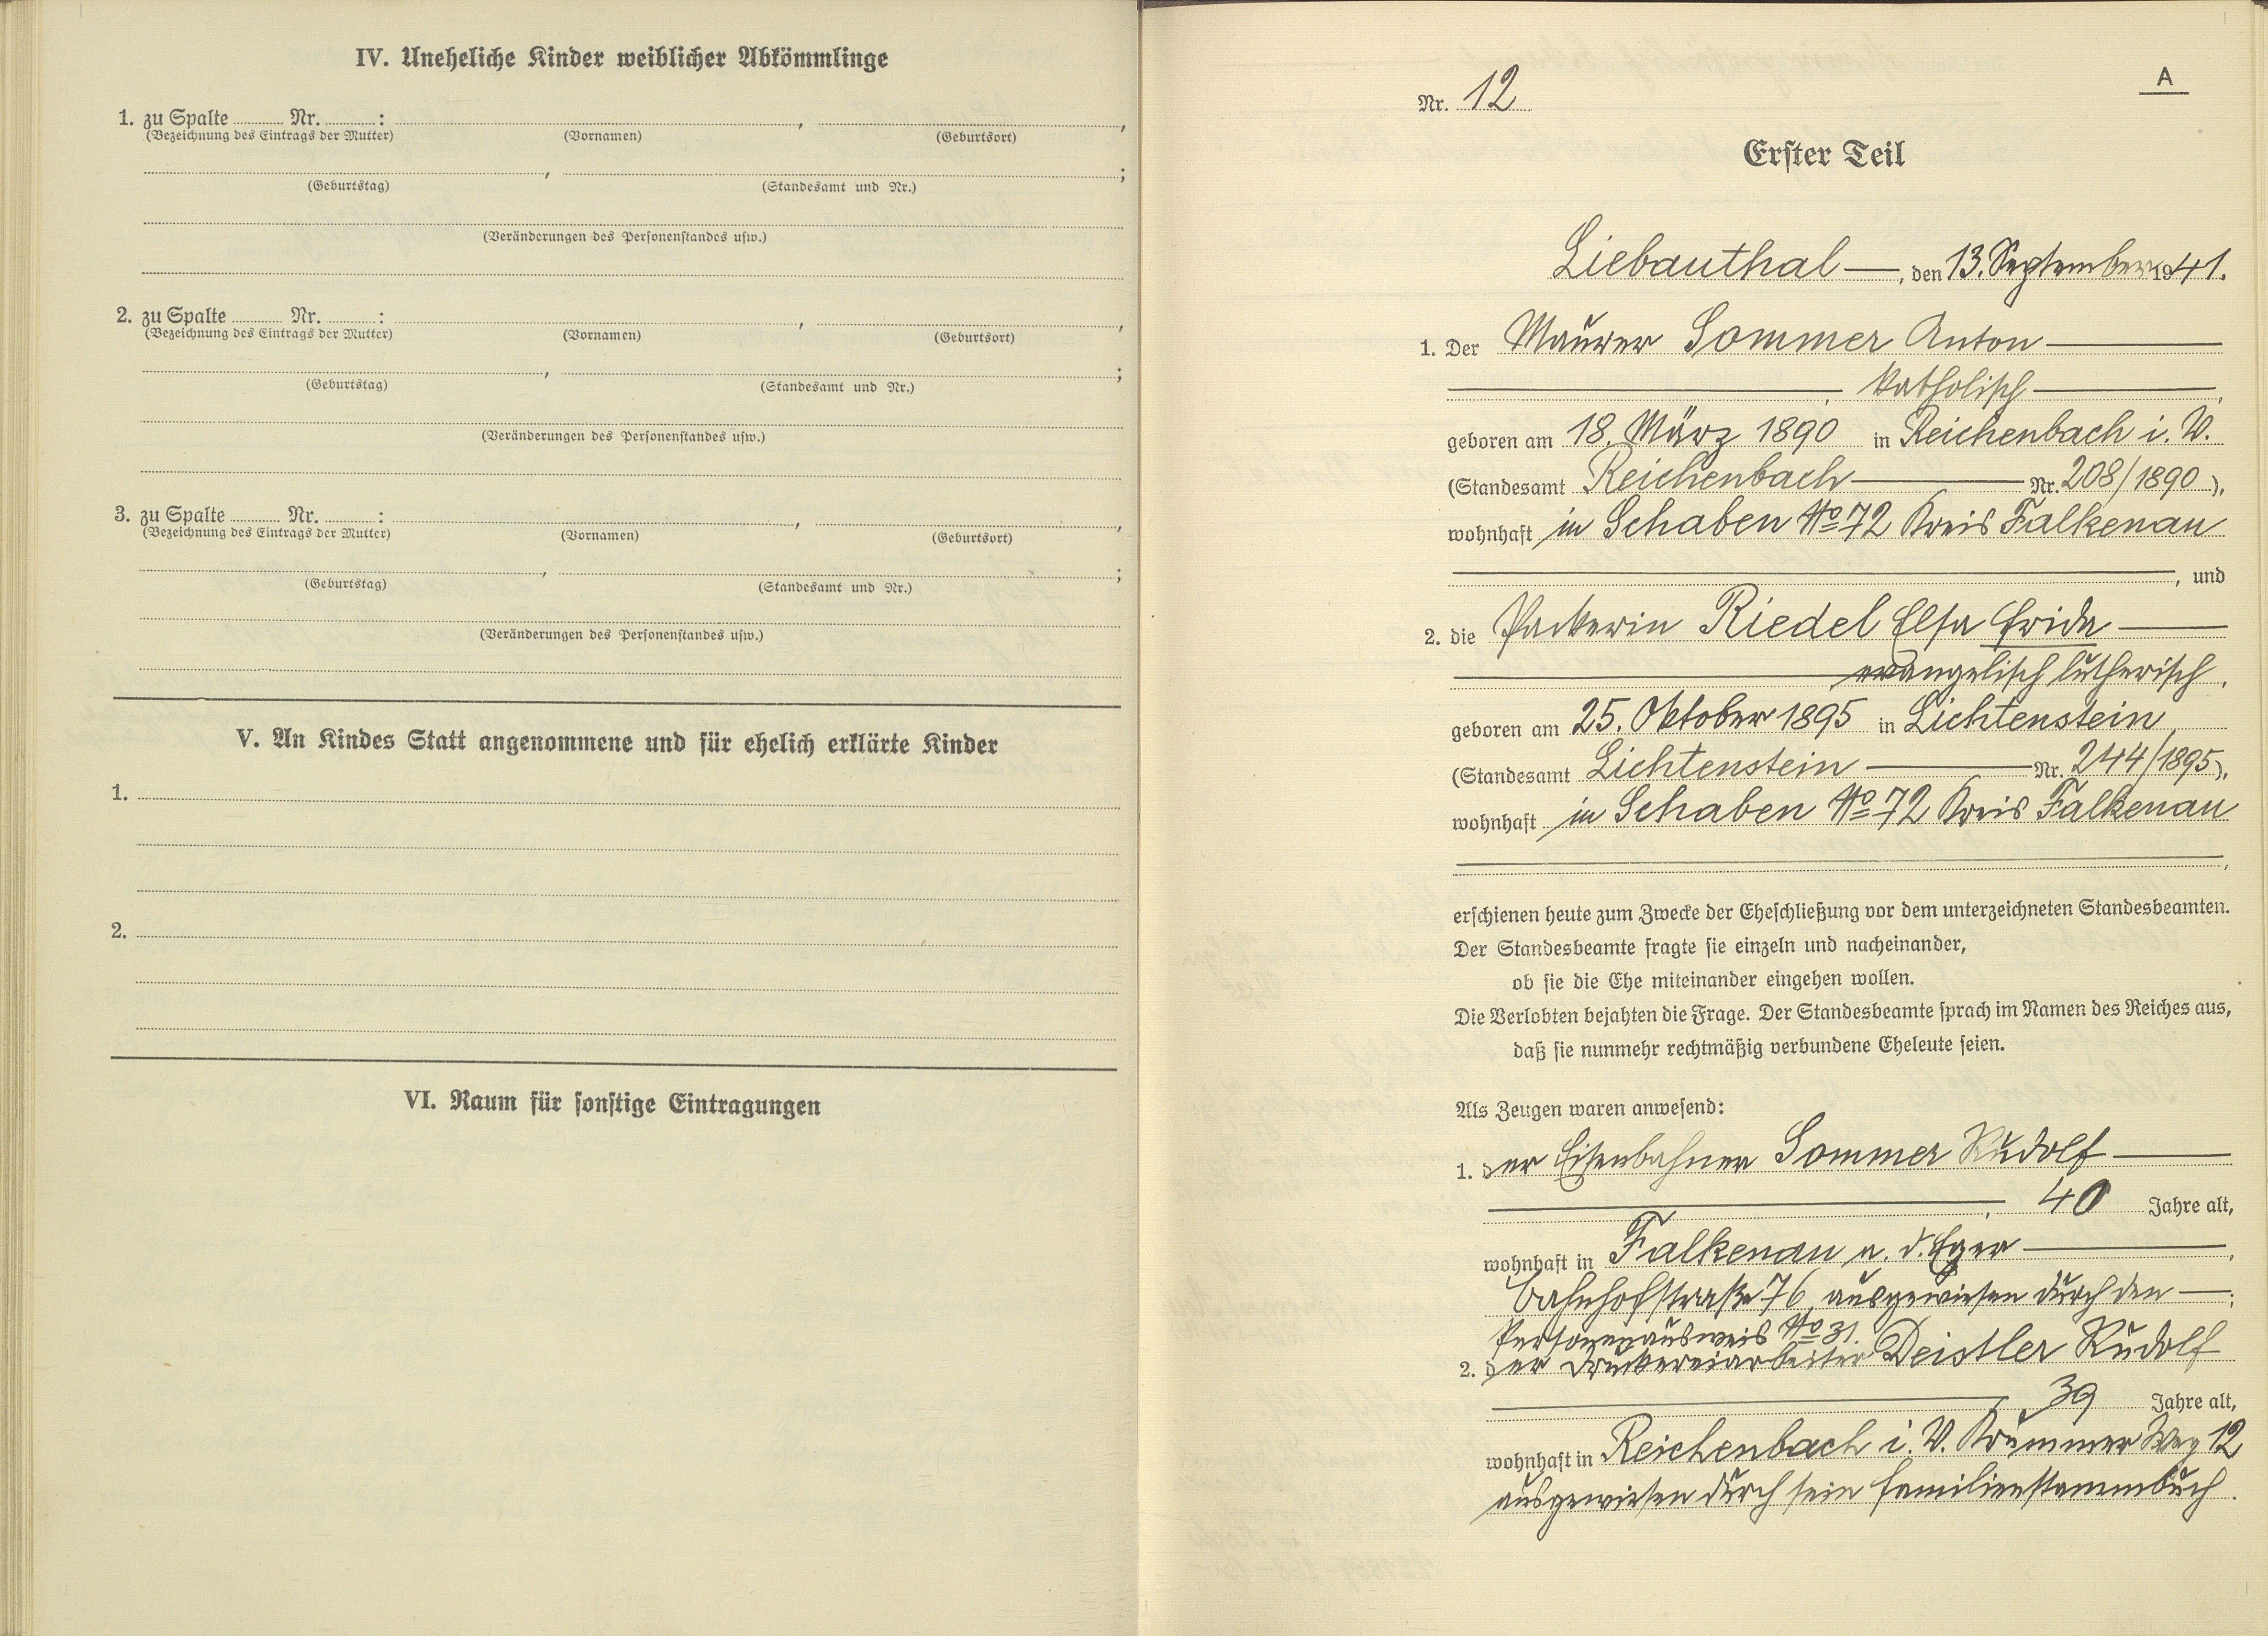 IV. Uneheliche Kinder weiblicher Abkömmlinge
1. zu Spalte ........ Nr. ........ : ........ , ........ ,
(Bezeichnung des Eintrags der Mutter) (Vornamen) (Geburtsort)
........ , ........ ;
(Geburtstag) (Standesamt und Nr.)
(Veränderungen des Personenstandes usw.)
2. zu Spalte ........ Nr. ........ : ........ , ........ ,
(Bezeichnung des Eintrags der Mutter) (Vornamen) (Geburtsort)
........ , ........ ;
(Geburtstag) (Standesamt und Nr.)
(Veränderungen des Personenstandes usw.)
3. zu Spalte ........ Nr. ........ : ........ , ........ ,
(Bezeichnung des Eintrags der Mutter) (Vornamen) (Geburtsort)
........ , ........ ;
(Geburtstag) (Standesamt und Nr.)
(Veränderungen des Personenstandes usw.)
V. An Kindes Statt angenommene und für ehelich erklärte Kinder
1.
2.
VI. Raum für sonstige Eintragungen
A
Nr. 12
Erster Teil
Liebauthal —, den 13. September 1941.
1. Der Maurer Sommer Anton —
—, katholisch —,
geboren am 18. März 1890 in Reichenbach i. V.
(Standesamt Reichenbach — Nr. 208/1890),
wohnhaft in Schaben No 72 Kreis Falkenau
—, und
2. die Packerin Riedel Elsa Frida —
— evangelisch lutherisch,
geboren am 25. Oktober 1895 in Lichtenstein
(Standesamt Lichtenstein — Nr. 244/1895),
wohnhaft in Schaben No 72 Kreis Falkenau
—,
erschienen heute zum Zwecke der Eheschließung vor dem unterzeichneten Standesbeamten.
Der Standesbeamte fragte sie einzeln und nacheinander,
ob sie die Ehe miteinander eingehen wollen.
Die Verlobten bejahten die Frage. Der Standesbeamte sprach im Namen des Reiches aus,
daß sie nunmehr rechtmäßig verbundene Eheleute seien.
Als Zeugen waren anwesend:
1. der Eisenbahner Sommer Rudolf —
—, 40 Jahre alt,
wohnhaft in Falkenau a. d. Eger —,
Bahnhofstraße 76, ausgewiesen durch den —;
Personenausweis No 31.
2. der Druckereiarbeiter Deistler Rudolf
—, 39 Jahre alt,
wohnhaft in Reichenbach i. V. Krummer Weg 12
ausgewiesen durch sein Familienstammbuch.